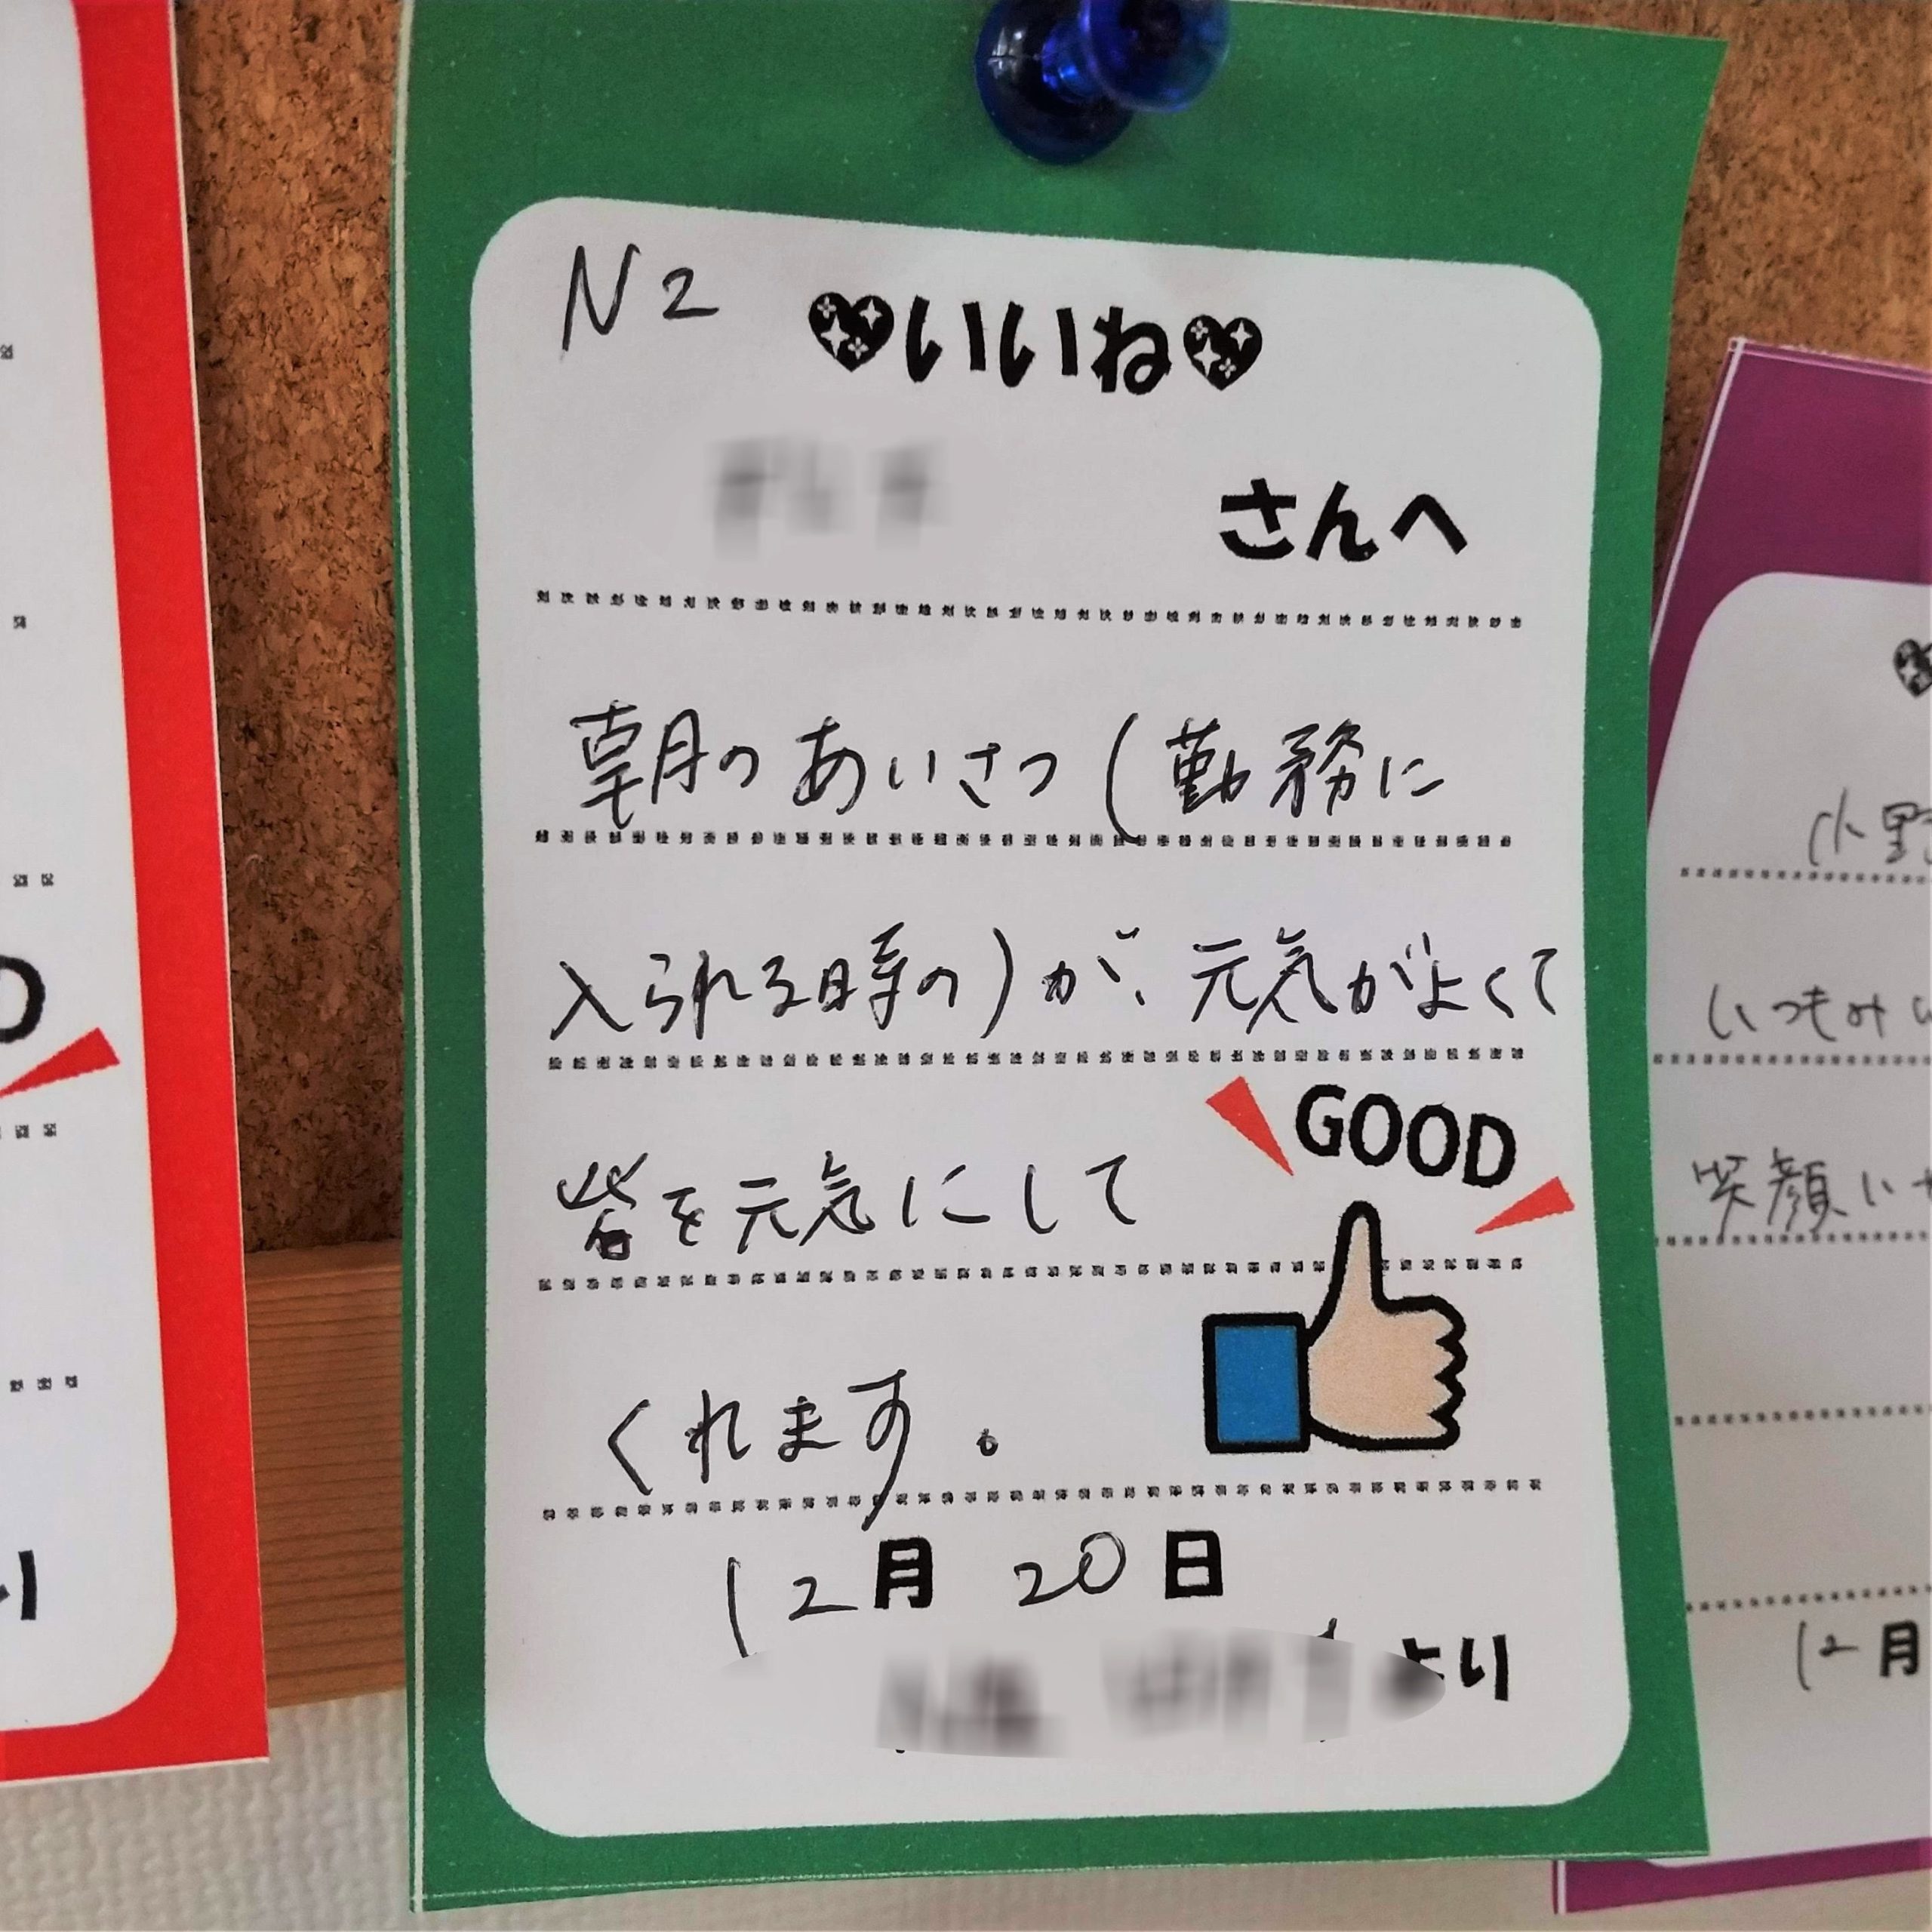 N2
♥いいね♥
さんへ
朝のあいさつ(勤務に
入られる時の)が、元気がよくて
皆を元気にして
GOOD
くれます。
12月20日
より
小野
いつもみ
笑顔い
12月